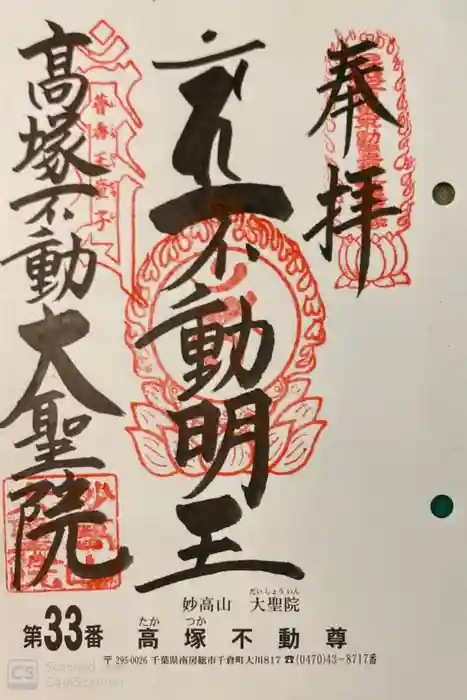 奉拝
不動明王
高塚不動 大聖院
普壽王童子
妙高山 大聖院
だいしょういん
第33番 高塚不動尊
たか つか
〒295-0026 千葉県南房総市千倉町大川817 ☎(0470)43-8717番
CS Scanned with
CamScanner